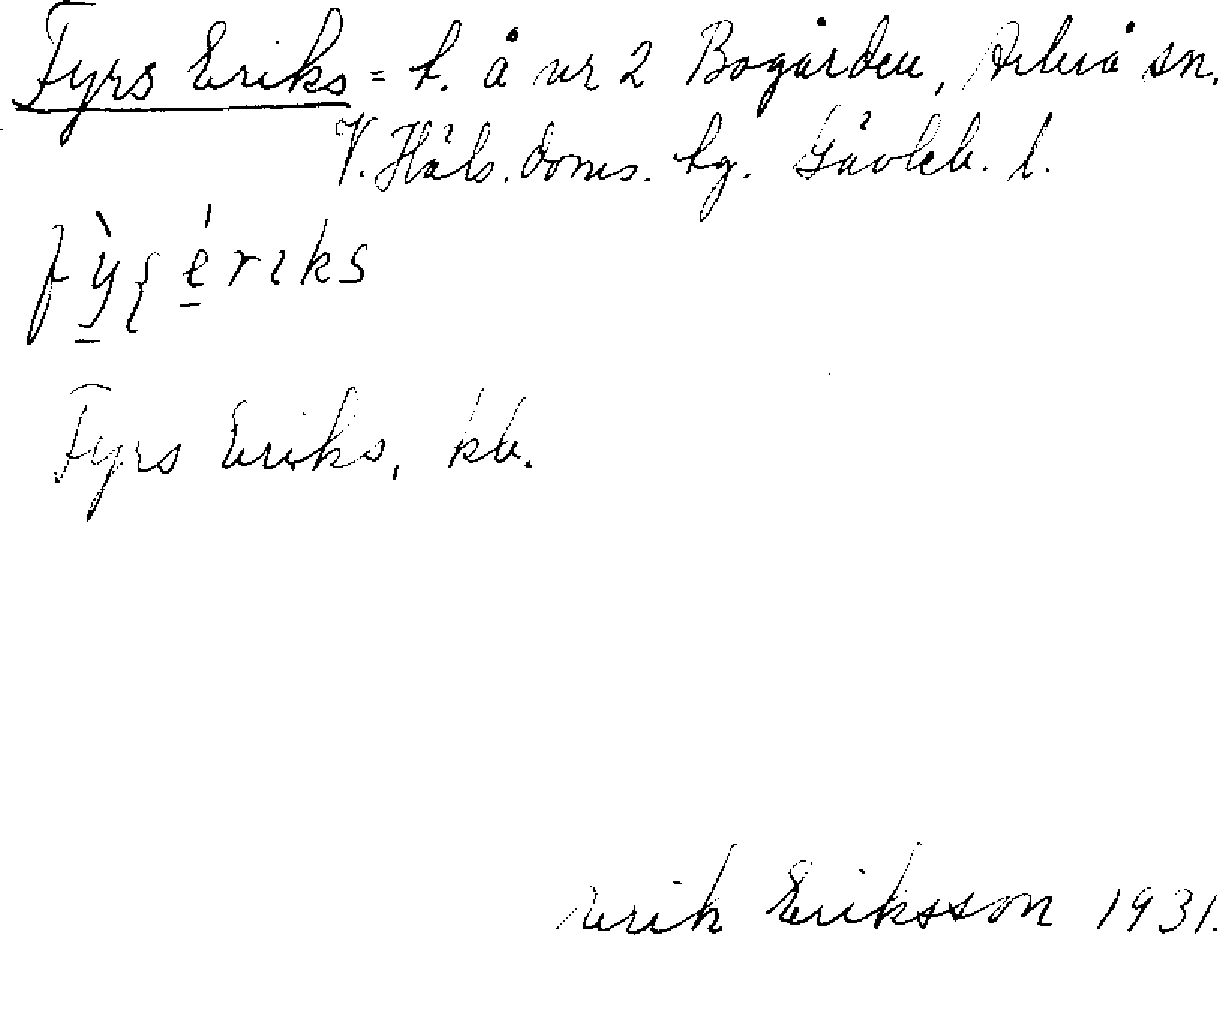 Fyrs Eriks = f. å nr 2 Bogården, Arbrå sn.
V. Häls. doms. hg. Gävleb. l.
fỳ̠ʂ é̠rɩks
Fyrs Eriks, kb.
Erik Eriksson 1931.